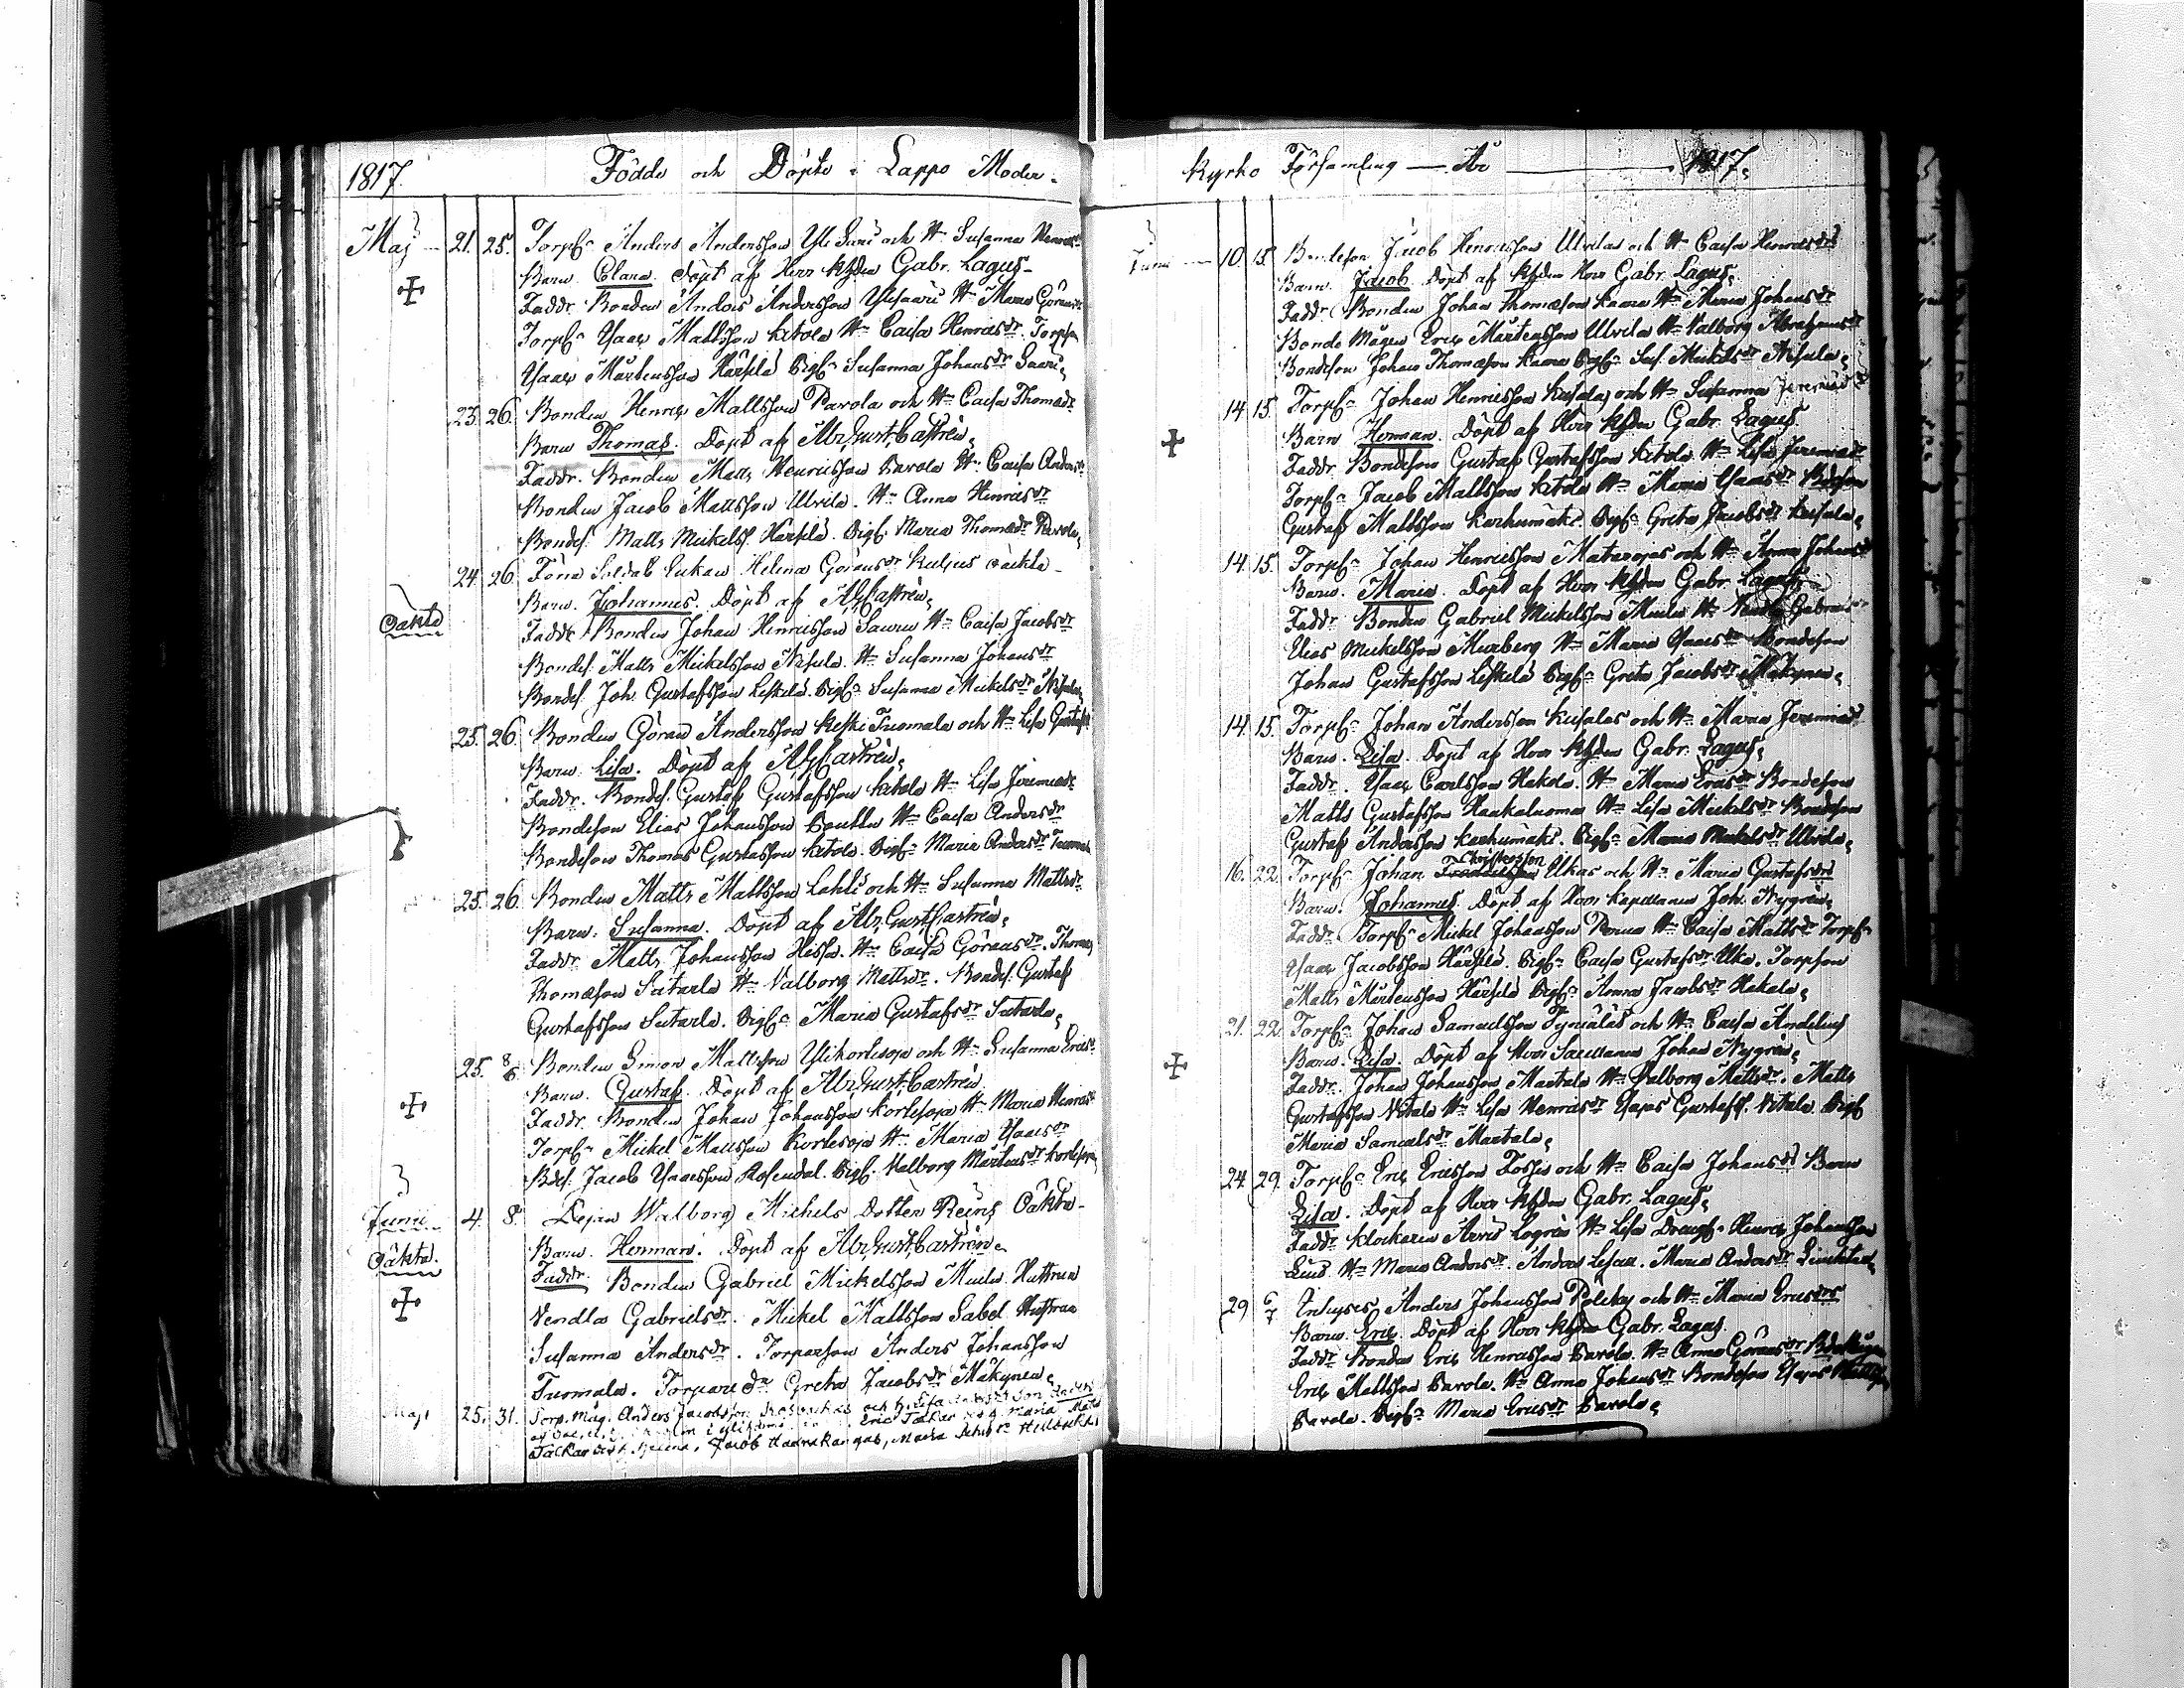 1817. Födde och Döpte i Lappo Moder-
Maj 21. 25. Torp. Anders Andersson Yli Saari och H. Susanna Henricsdr
Barn Clara. Döpt af Herr Kyhden Gabr. Lagus.
Faddr. Bonden Anders Andersson Ylisaari H. Maria Göransdr
Torp. Isaac Mattsson Ketola H. Caisa Henricsdr. Torpson
Isaac Mårtensson Härsilä Pig. Susanna Johansdr Saari.
23. 26. Bonden Henric Mattsson Pavola och H. Caisa Thomasdr
Barn Thomas. Döpt af Abr. Gust. Castrén.
Faddr. Bonden Matts Henricsson Pavola H. Caisa Andersdr
Bonden Jacob Mattsson Ulvila. H. Anna Henricsdr
Bondes. Matts Mickelss. Härsilä. Pig. Maria Thomasdr Pavola.
24. 26. Förra Soldats Enkan Helena Göransdr oäckta
Oäkta
Barn. Johannes. Döpt af AGCastrén.
Faddr. Bonden Johan Henricsson Sauru H. Caisa Jacobsdr
Bondes. Matts Mickelsson Nisula. H. Susanna Johansdr
Bondes. Joh. Gustafsson Liskilä. Pig. Susanna Mickelsdr Nisula.
25. 26. Bonden Göran Andersson Keski Tuomala och H. Lisa Gustafsdr
Barn. Lisa. Döpt af AGCastrén.
Faddr. Bondes. Gustaf Gustafsson Ketola H. Lisa Jeremiaedr
Bondeson Elias Johansson Poutta H. Caisa Andersdr
Bondeson Thomas Gustafsson Ketola. Pig. Maria Andersdr Tuomala
25. 26. Bonden Matts Mattsson Lahti och H. Susanna Mattsdr
Barn. Susanna. Döpt af Abr. Gust. Castrén.
Faddr. Matts Johansson Hissa. H. Caisa Göransdr. Thomas
Thomasson Sutarla H. Valborg Mattsdr. Bondes. Gustaf
Gustafsson Sutarla. Pig. Maria Gustafsdr Sutarla.
25. 8/6 Bonden Simon Mattsson Ylikortesoja och H. Susanna Ericsdr
Barn. Gustaf. Döpt af Abr. Gust. Castrén
Faddr. Bonden Johan Johansson Kortesoja H. Maria Henricsdr
Torp. Mickel Mattsson Kortesoja H. Maria Isaacsdr
Bdes. Jacob Isaacsson Rosendal. Pig. Valborg Mårtensdr Kortesoja
Junii 4. 8. Pigan Walborg Michels Dotter Reini Oäkta
Oäkta.
Barn. Herman. Döpt af Abr. Gust. Castrén.
Faddr. Bonden Gabriel Mickelsson Hustrun
Vendla Gabrielsdr. Mickel Mattsson Sabel Hustrun
Susanna Andersdr. Torparson Anders Johansson
Tuomala. Torpare dr Greta Jacobsdr Mäkynen.
Maji 25. 31. Torp. Måg. Anders Jacobsson och H. Lisa
Eric Talkar
Talkar Helena, Jacob Hannukangas, Maria
Kyrko Församling — År — 1817.
Junii 10. 15. Bondeson Jacob Henricsson Ulvilas och H. Caisa Henricsdr
Barn. Jacob. Döpt af Kyhden Herr Gabr. Lagus.
Faddr. Bonden Johan Thomasson Kaara H. Maria Johansdr
Bonde Mågen Eric Mårtensson Ulvila H. Valborg Abrahamsdr
Bondeson Johan Thomasson Kaara Pig. Sus. Mickelsdr Nisula.
14. 15. Torp. Johan Henricsson Kuisala och H. Susanna Jeremiaedr
Barn Herman. Döpt af Herr Kyhden Gabr. Lagus.
Faddr. Bondeson Gustaf Gustafsson Ketola H. Lisa Jeremiaedr
Torp. Jacob Mattsson Ketola H. Maria Isaacsdr Bdeson
Gustaf Mattsson Karhumäki. Pig. Greta Jacobsdr Kuisala.
14. 15. Torp. Johan Henricsson Mataojas och H. Anna Johansdr
Barn. Maria. Döpt af Herr Kyhden Gabr. Lagus.
Faddr. Bonden Gabriel Mickelsson H. Gabrielsdr
Elias Mickelsson Murberg H. Maria Isaacsdr Bondeson
Johan Gustafsson Liskilä Pig. Greta Jacobsdr Mäkynen.
14. 15. Torp. Johan Andersson Kuisalas och H. Maria Jeremiaedr
Barn. Lisa. Döpt af Herr Kyhden Gabr. Lagus.
Faddr. Isaac Carlsson Hakola. H. Maria Ericsdr Bondeson
Matts Gustafsson Haukaluoma H. Lisa Mickelsdr Bondeson
Gustaf Andersson Karhumäki. Pig. Maria Mickelsdr Ulvila.
16. 22. Torp. Johan Christersson Ulkas och H. Maria Gustafsdr
Barn. Johannes. Döpt af Herr Kapellanen Joh. Nygrén.
Faddr. Torp. Mickel Johansson H. Caisa Mattsdr Torp.
Isaac Jacobsson Härsilä. Pig. Caisa Gustafsdr Ulka. Torpson
Matts Mårtensson Härsilä Pig. Anna Jacobsdr Hakala.
21. 22. Torp. Johan Samuelsson Tynjälä och H. Caisa Andelin
Barn. Lisa. Döpt af Herr Sacellanen Johan Nygrén.
Faddr. Johan Johansson Martala H. Valborg Mattsdr. Matts
Gustafsson Vitala H. Lisa Henricsdr Isaac Gustafss. Vitala. Pig
Maria Samuelsdr Martala.
24. 29. Torp. Eric Ericsson och H. Caisa Johansdr Barn
Lisa. Döpt af Herr Kyhden Gabr. Lagus.
Faddr. Klockaren H. Lisa Dräng. Henric Johansson
H. Maria Andersdr. Anders Maria Andersdr
29 6/7 Enhyses Anders Johansson och H. Maria Ericsdr
Barn. Eric. Döpt af Herr Kyhden Gabr. Lagus.
Faddr. Bonden Eric Henricsson Pavola. H. Anna Göransdr Bdemågen
Eric Mattsson Pavola. H. Anna Johansdr Bondeson Isaac Mattsson
Pavola. Pig. Maria Ericsdr Pavola.